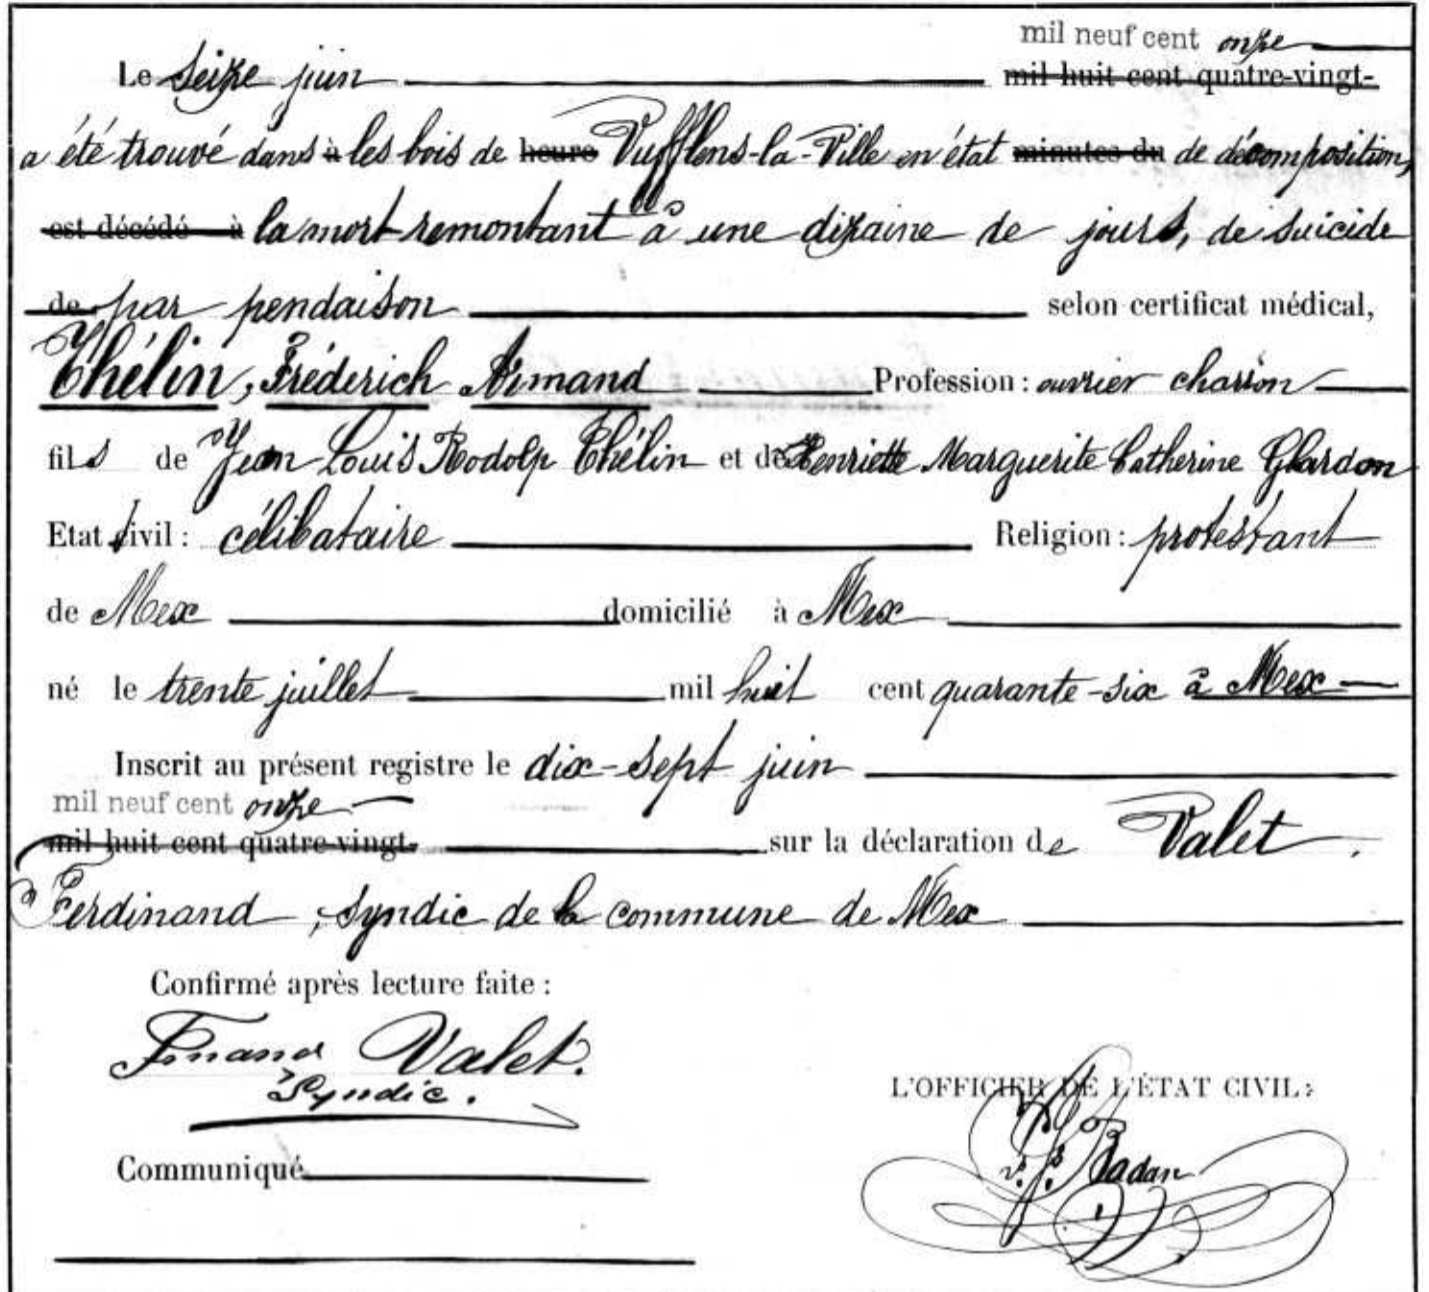 mil neuf cent onze
Le seize juin mil huit cent quatre-vingt-
a été trouvé dans à les bois de heure Vufflens-la-Ville en état minutes du de décomposition,
est décédé à la mort remontant à une dizaine de jours, de suicide
de par pendaison selon certificat médical,
Thélin, Fréderich Armand Profession : ouvrier charron
fils de Jean Louis Rodolp Thélin et de Henriette Marguerite Catherine Glardon
Etat civil : célibataire Religion : protestant
de Mex domicilié à Mex
né le trente juillet mil huit cent quarante-six à Mex
Inscrit au présent registre le dix-sept juin
mil neuf cent onze
mil huit cent quatre-vingt- sur la déclaration de Valet,
Ferdinand, syndic de la commune de Mex
Confirmé après lecture faite :
Valet.
Syndic.
L'OFFICIER DE L'ÉTAT CIVIL :
Badan
Communiqué